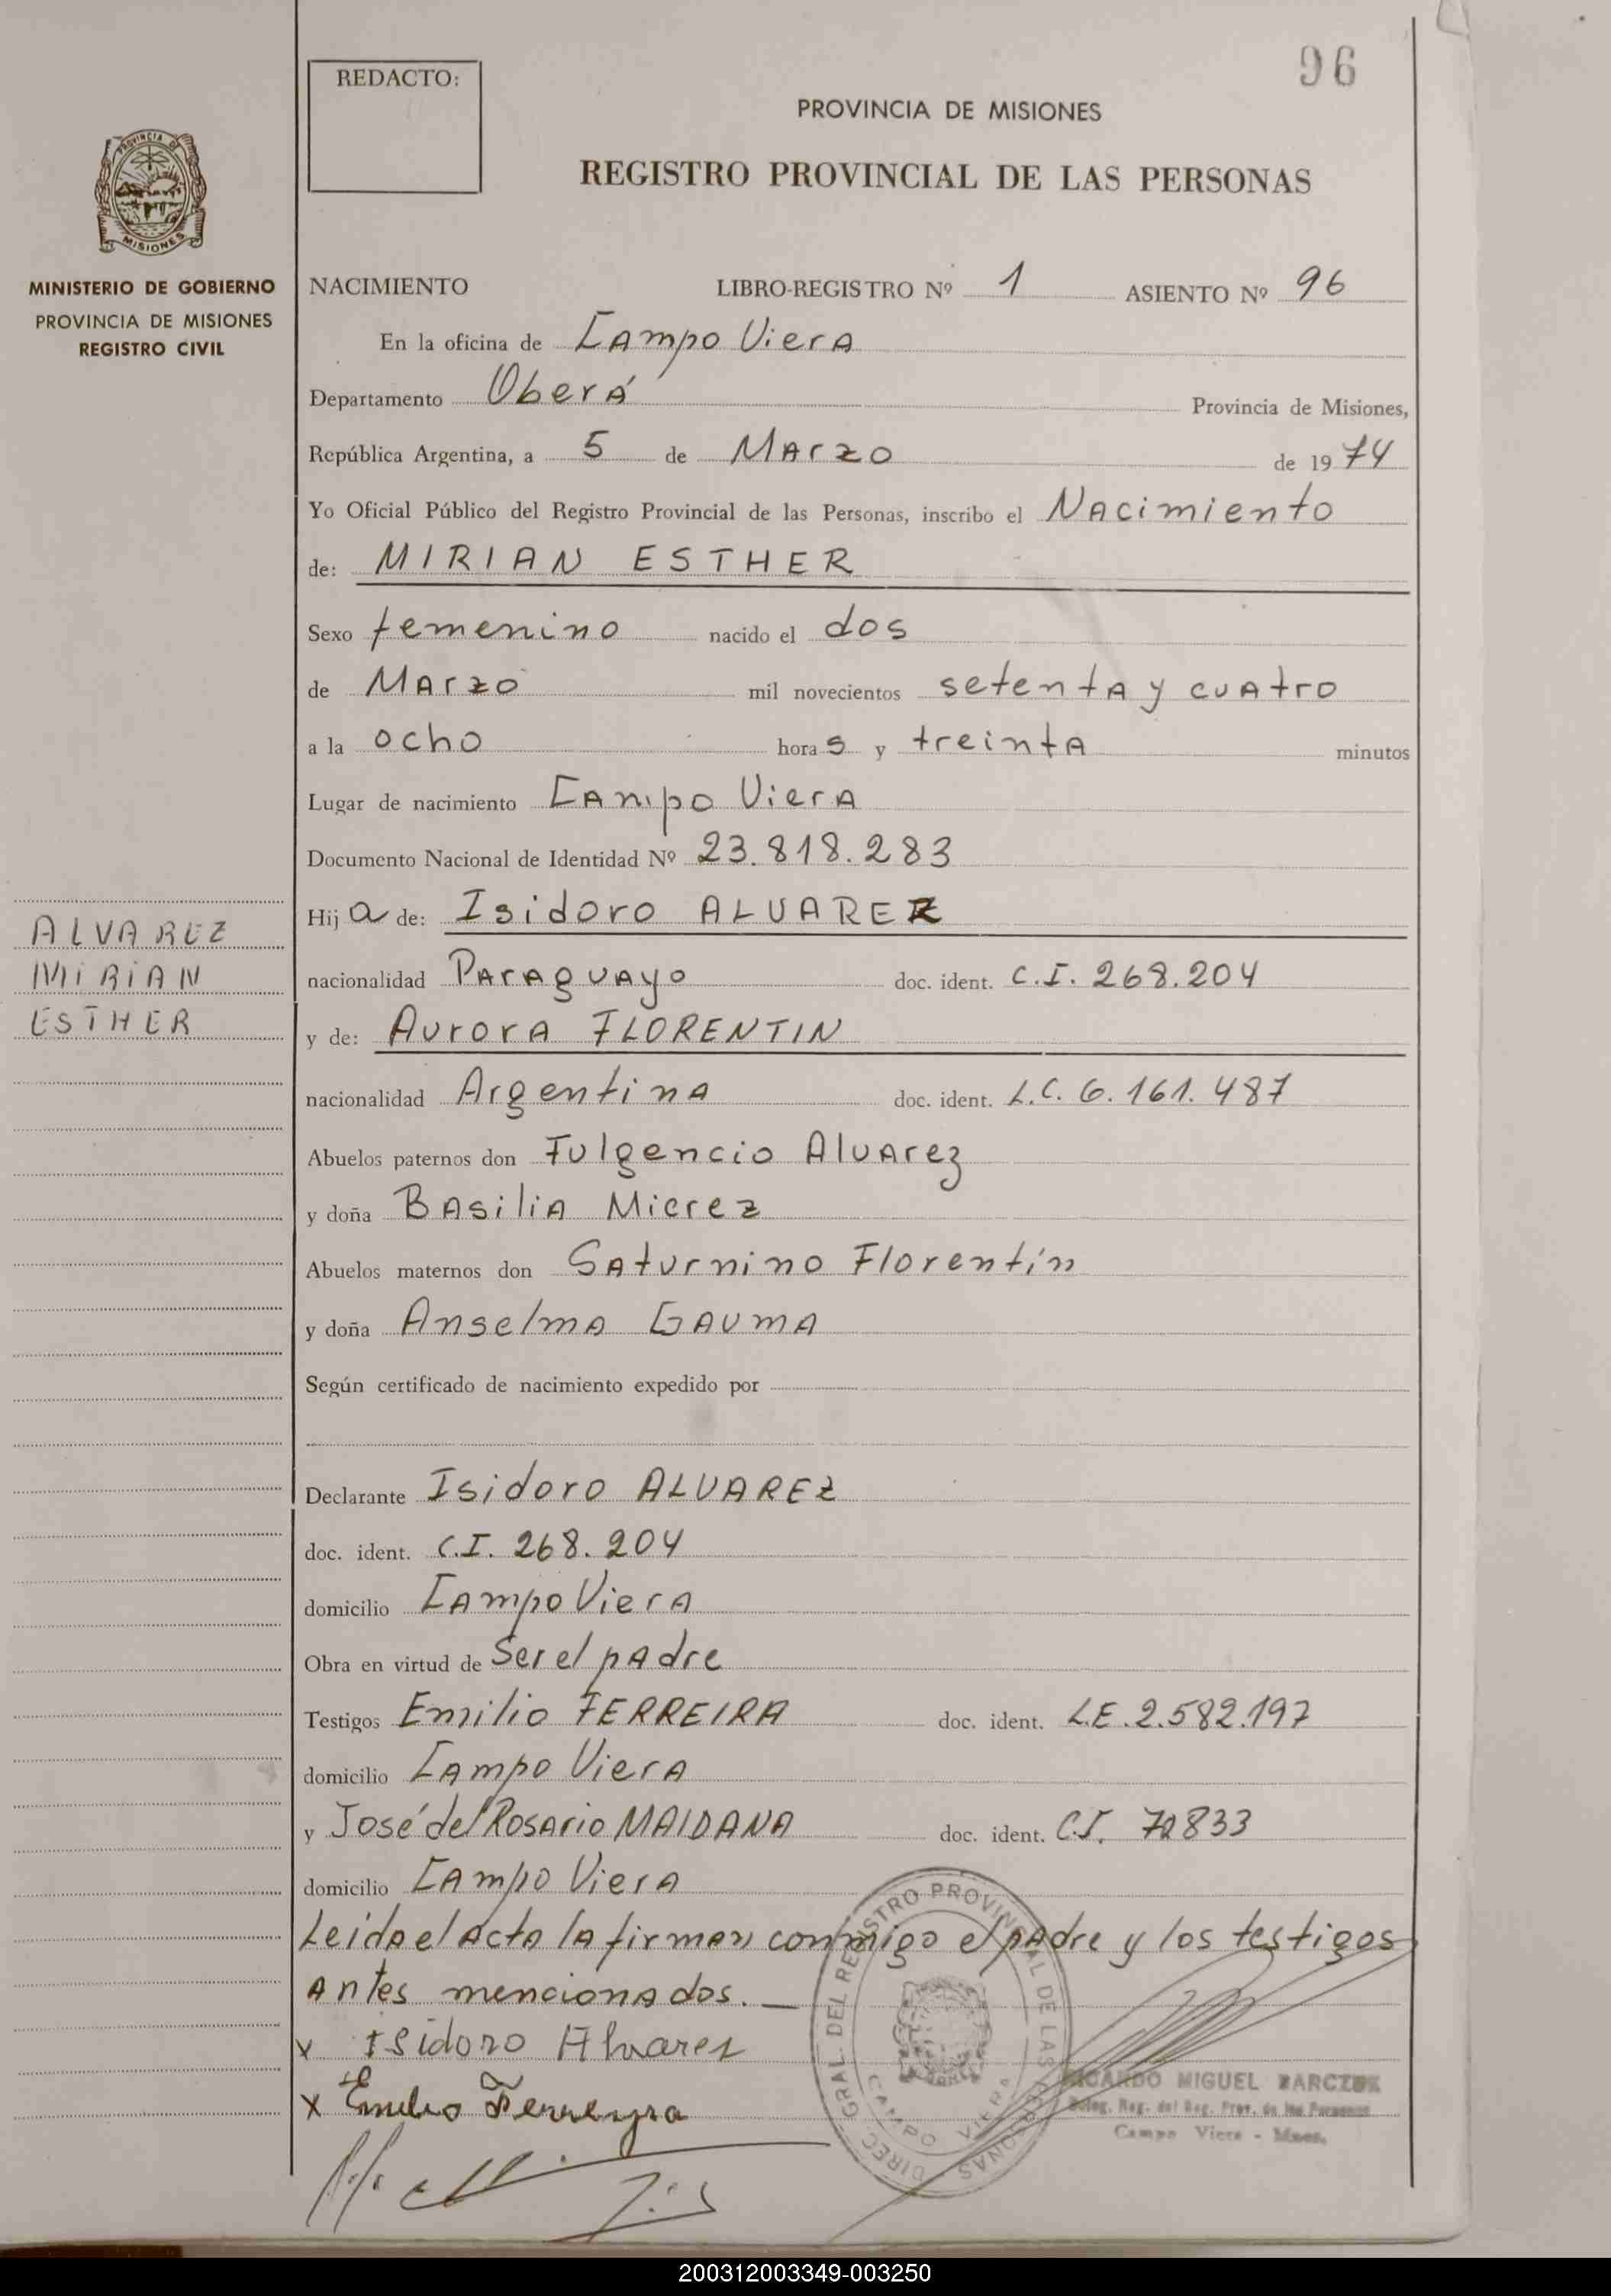 96
REDACTO:
PROVINCIA DE MISIONES
REGISTRO PROVINCIAL DE LAS PERSONAS
PROVINCIA DE
MISIONES
MINISTERIO DE GOBIERNO
PROVINCIA DE MISIONES
REGISTRO CIVIL
NACIMIENTO LIBRO-REGISTRO Nº 1 ASIENTO Nº 96
En la oficina de Campo Viera
Departamento Oberá Provincia de Misiones,
República Argentina, a 5 de Marzo de 1974
Yo Oficial Público del Registro Provincial de las Personas, inscribo el Nacimiento
de: MIRIAN ESTHER
Sexo femenino nacido el dos
de Marzo mil novecientos setenta y cuatro
a la ocho horas y treinta minutos
Lugar de nacimiento Campo Viera
Documento Nacional de Identidad Nº 23.818.283
Hija de: Isidoro ALVAREZ
ALVAREZ
MIRIAN
ESTHER
nacionalidad Paraguayo doc. ident. C.I. 268.204
y de: Aurora FLORENTIN
nacionalidad Argentina doc. ident. L.C. 6.161.487
Abuelos paternos don Fulgencio Alvarez
y doña Basilia Mierez
Abuelos maternos don Saturnino Florentín
y doña Anselma Gauma
Según certificado de nacimiento expedido por
Declarante Isidoro ALVAREZ
doc. ident. C.I. 268.204
domicilio Campo Viera
Obra en virtud de Ser el padre
Testigos Emilio FERREIRA doc. ident. L.E. 2.582.197
domicilio Campo Viera
y José del Rosario MAIDANA doc. ident. C.I.
domicilio Campo Viera
Leida el acta la firman conmigo el padre y los testigos
antes mencionados.
x Isidoro Alvares
x Emilio Ferreyra
DIREC. GRAL. DEL REGISTRO PROVINCIAL DE LAS PERSONAS
CAMPO VIERA
RICARDO MIGUEL
Deleg. Reg. del Reg. Prov. de las Personas
Campo Viera - Mnes.
200312003349-003250